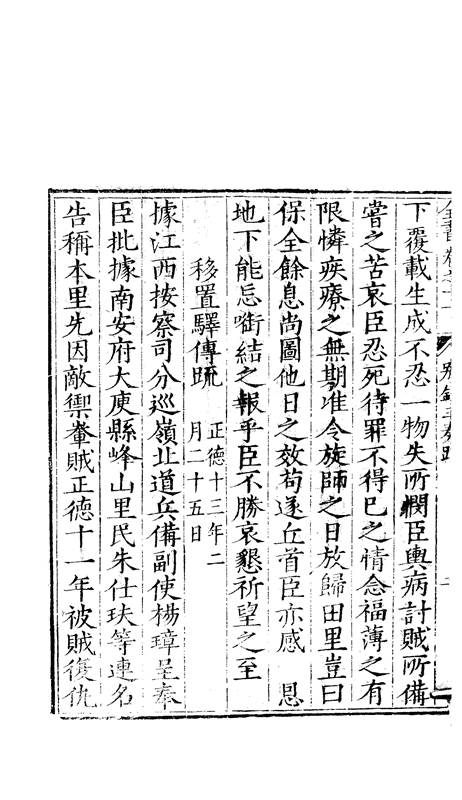 下覆載生成不忍一物失所憫臣輿病討賊所備
嘗之苦哀臣忍死待罪不得巳之情念福薄之有
限憐疾療之無期准令旋師之日放歸田里豈曰
保全餘息尚圖他日之效苟遂丘首臣亦感 恩
地下能忘啣結之報乎臣不勝哀懇祈望之至
移置驛傳疏 正德十三年二月二十五日
據江西按察司分巡嶺北道兵備副使楊璋呈奉
臣批據南安府大庾縣峰山里民朱仕玞等連名
告稱本里先因敵禦輋賊正德十一年被賊復仇